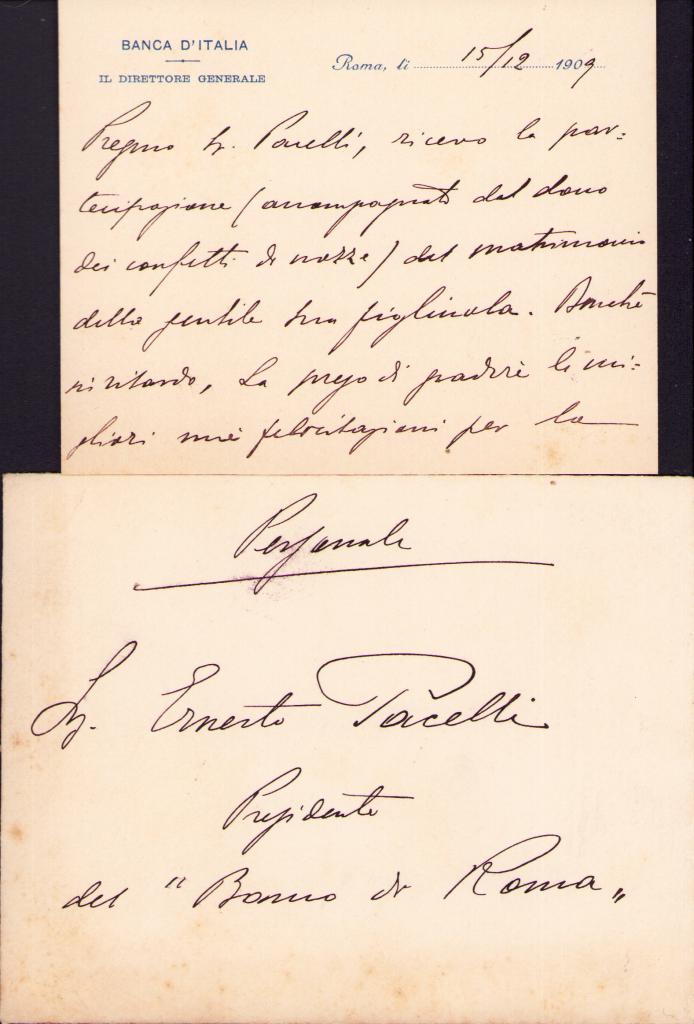 BANCA D'ITALIA
IL DIRETTORE GENERALE
Roma, li 15/12 1909
Pregmo Sr. Pacelli, ricevo la par=
tecipazione (accompagnata dal dono
dei confetti di nozze) del matrimonio
della gentile sua figliuola. Benchè
in ritardo, La prego di gradire le mi=
gliori mie felicitazioni per la
Personale
Sr. Ernesto Pacelli
Presidente
del "Banco di Roma"